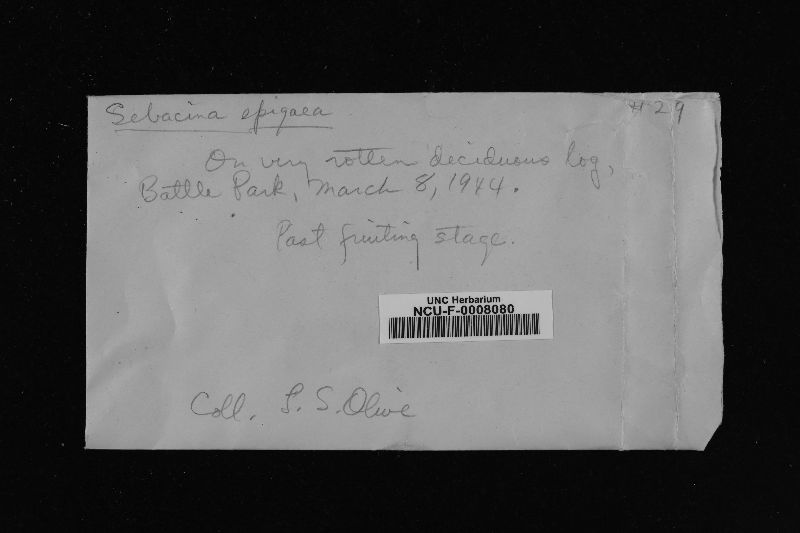 Sebacina epigaea
# 29
On very rotten deciduous log,
Battle Park, March 8, 1944.
Past fruiting stage.
UNC Herbarium
NCU-F-0008080
Coll. L. S. Olive